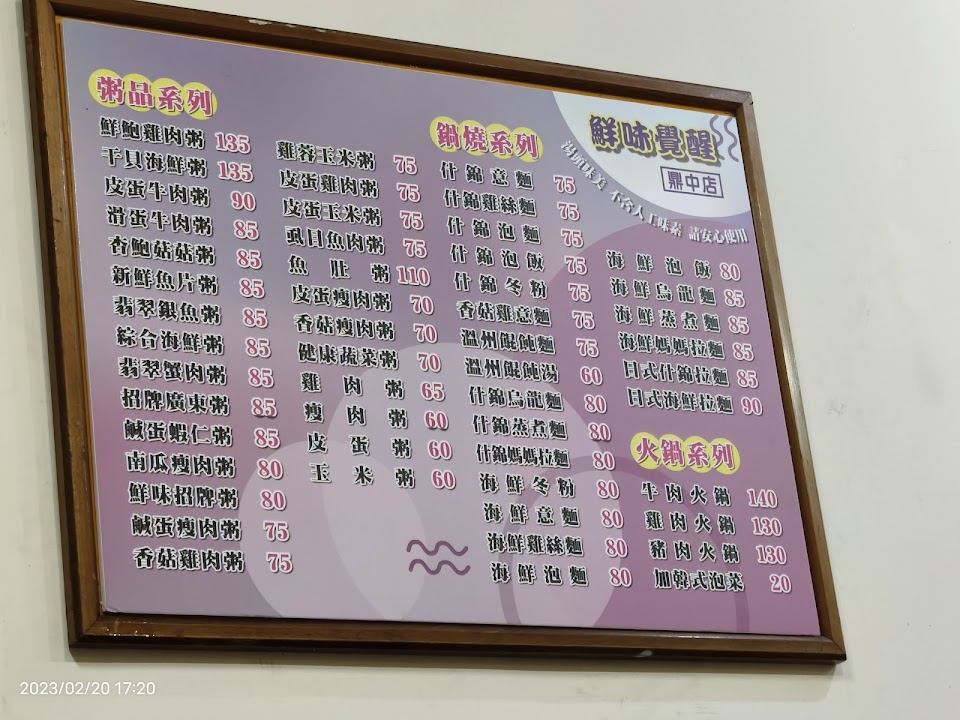 粥品系列
鮮鮑雞肉粥 135
干貝海鮮粥 135
皮蛋牛肉粥 90
滑蛋牛肉粥 85
杏鮑菇菇粥 85
新鮮魚片粥 85
翡翠銀魚粥 85
綜合海鮮粥 85
翡翠蟹肉粥 85
招牌廣東粥 85
鹹蛋蝦仁粥 85
南瓜瘦肉粥 80
鮮味招牌粥 80
鹹蛋瘦肉粥 75
香菇雞肉粥 75
雞蓉玉米粥 75
皮蛋雞肉粥 75
皮蛋玉米粥 75
虱目魚肉粥 75
魚肚粥 110
皮蛋瘦肉粥 70
香菇瘦肉粥 70
健康蔬菜粥 70
雞肉粥 65
瘦肉粥 60
皮蛋粥 60
玉米粥 60
鍋燒系列
什錦意麵 75
什錦雞絲麵 75
什錦泡麵 75
什錦泡飯 75
什錦冬粉 75
香菇雞意麵 75
溫州餛飩麵 75
溫州餛飩湯 60
什錦烏龍麵 80
什錦蒸煮麵 80
什錦媽媽拉麵 80
海鮮冬粉 80
海鮮意麵 80
海鮮雞絲麵 80
海鮮泡麵 80
鮮味覺醒
鼎中店
湯頭味美 不含人工味素 請安心使用
海鮮泡飯 80
海鮮烏龍麵 85
海鮮蒸煮麵 85
海鮮媽媽拉麵 85
日式什錦拉麵 85
日式海鮮拉麵 90
火鍋系列
牛肉火鍋 140
雞肉火鍋 130
豬肉火鍋 130
加韓式泡菜 20
2023/02/20 17:20